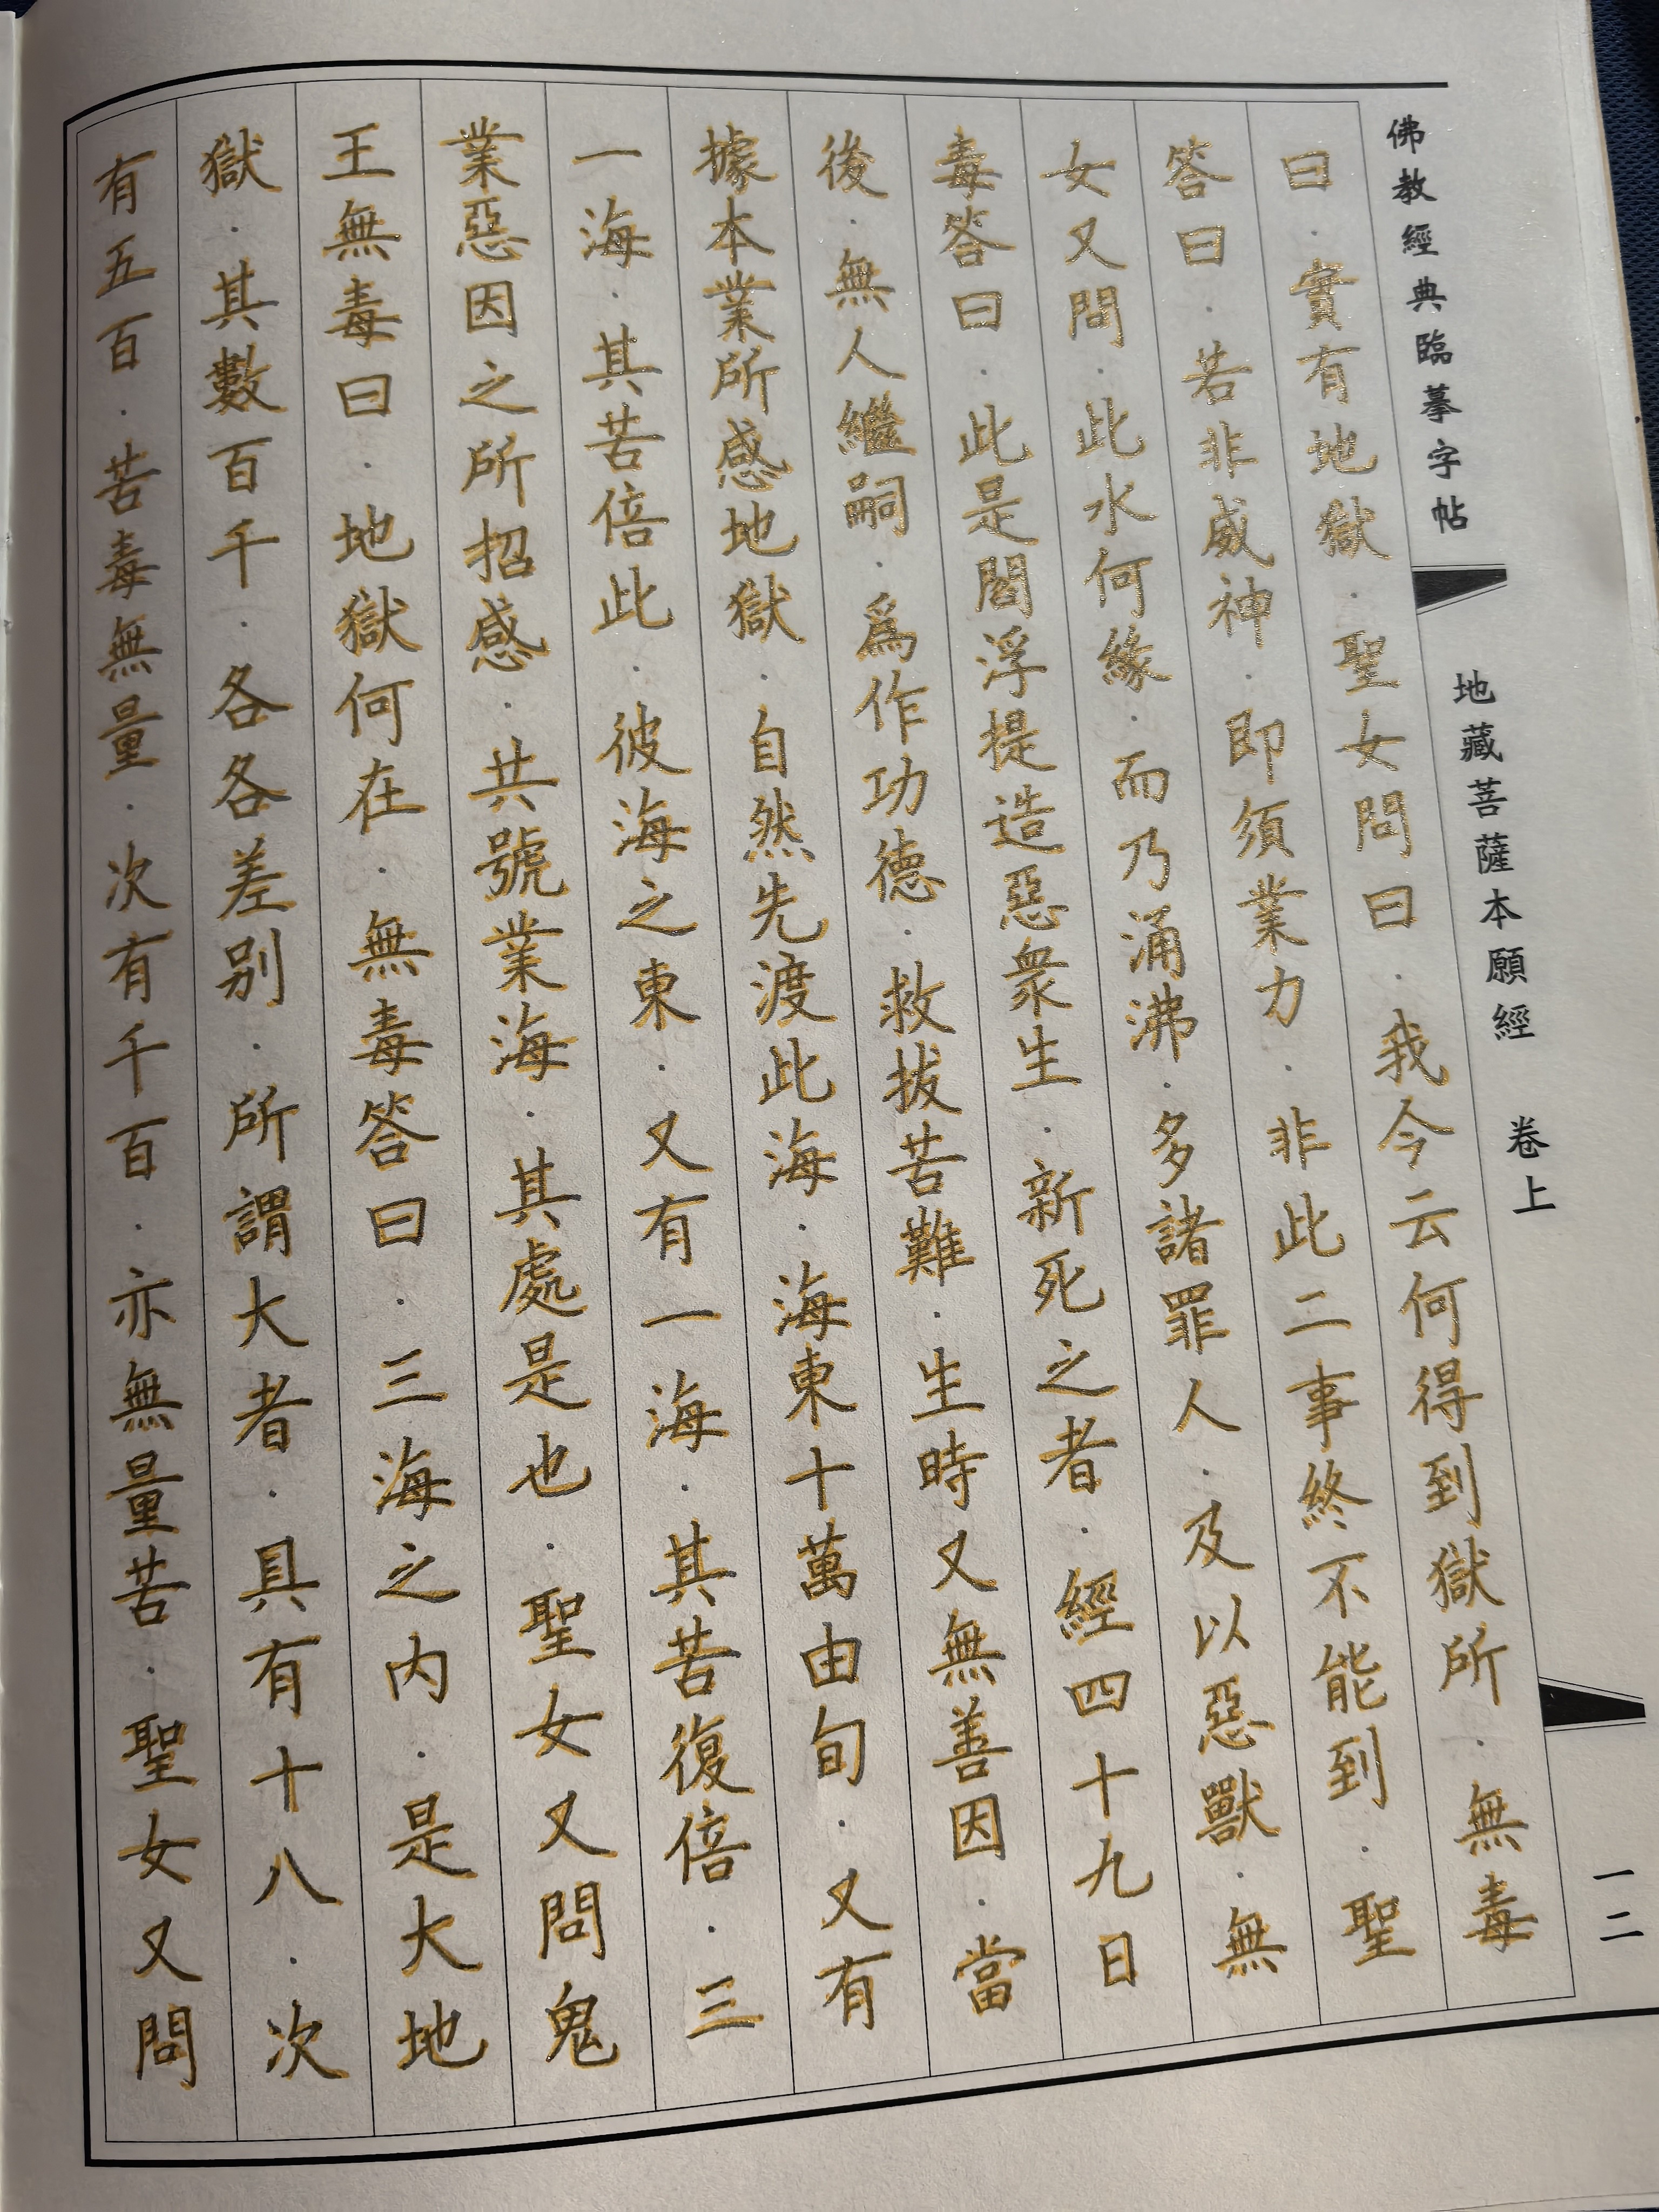 佛教經典臨摹字帖 地藏菩薩本願經 卷上 一二
曰．實有地獄．聖女問曰．我今云何得到獄所．無毒
答曰．若非威神．即須業力．非此二事終不能到．聖
女又問．此水何緣．而乃涌沸．多諸罪人．及以惡獸．無
毒答曰．此是閻浮提造惡眾生．新死之者．經四十九日
後．無人繼嗣．爲作功德．救拔苦難．生時又無善因．當
據本業所感地獄．自然先渡此海．海東十萬由旬．又有
一海．其苦倍此．彼海之東．又有一海．其苦復倍．三
業惡因之所招感．共號業海．其處是也．聖女又問鬼
王無毒曰．地獄何在．無毒答曰．三海之內．是大地
獄．其數百千．各各差別．所謂大者．具有十八．次
有五百．苦毒無量．次有千百．亦無量苦．聖女又問